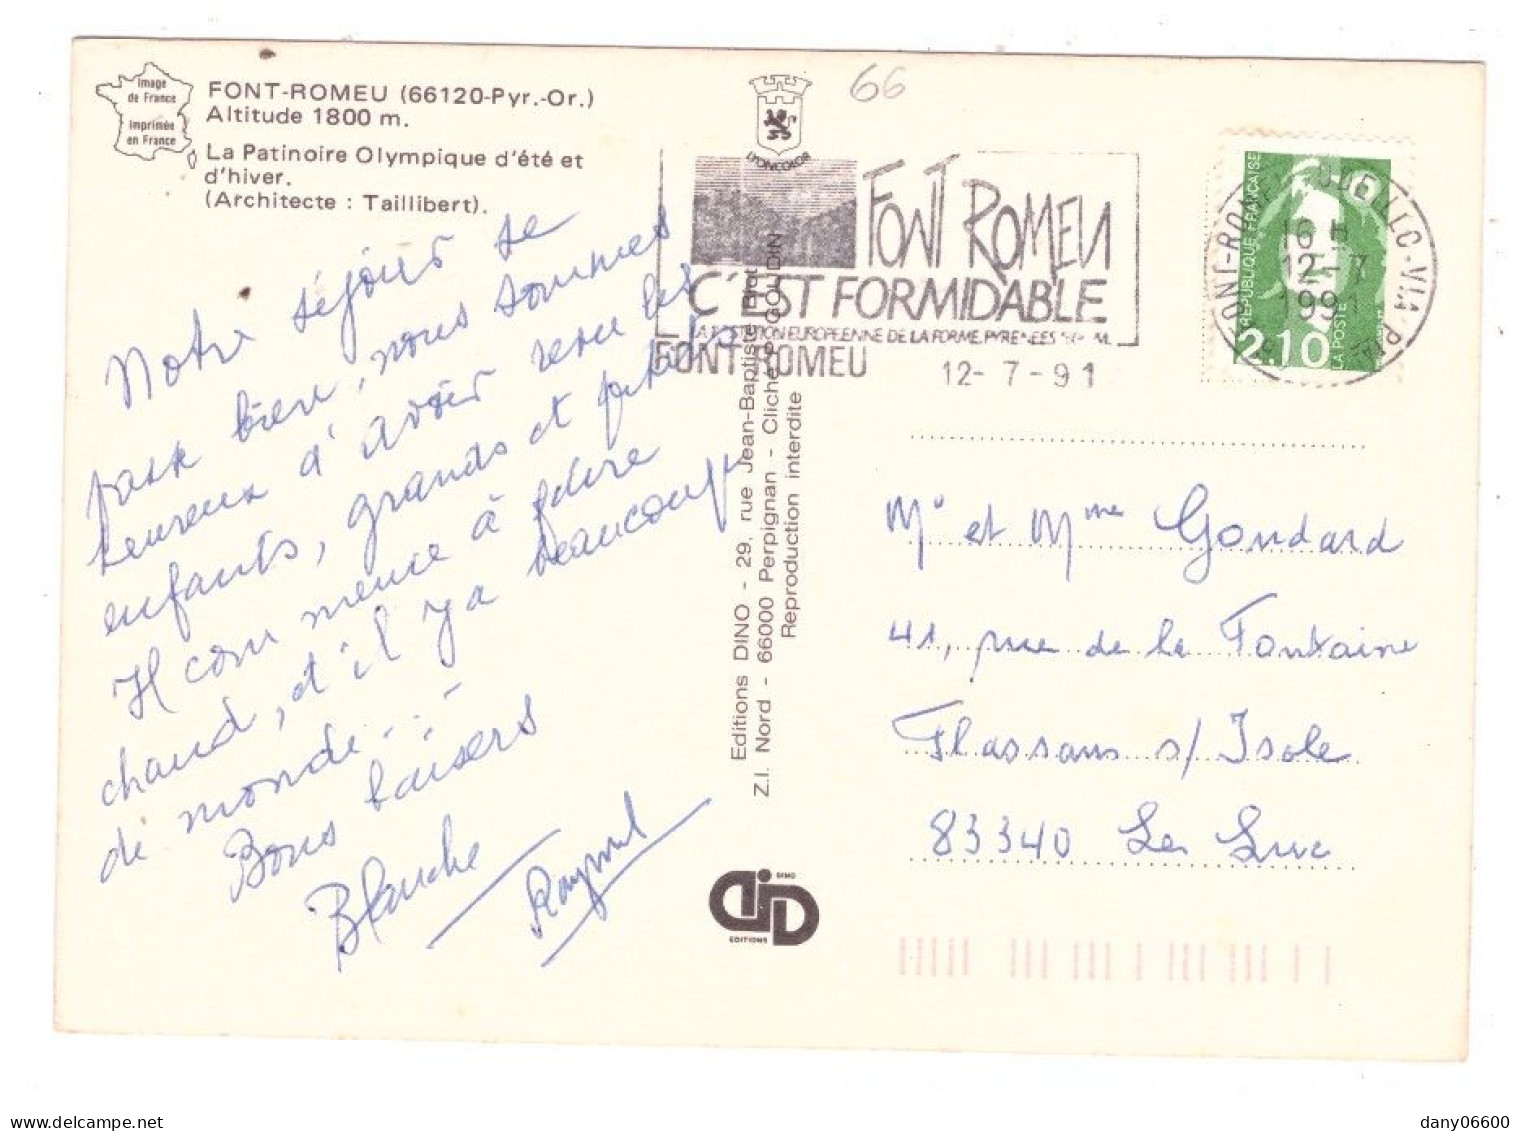 Image
de France
Imprimée
en France
FONT-ROMEU (66120-Pyr.-Or.)
Altitude 1800 m.
La Patinoire Olympique d'été et
d'hiver.
(Architecte : Taillibert).
Notre séjour se
passe bien, nous sommes
heureux d'avoir revu les
enfants, grands et petits
Il commence à faire
chaud, et il y a beaucoup
de monde...
Bons baisers
Blanche
Raymond
LYONCOLOR
66
FONT ROMEU
C'EST FORMIDABLE
LA STATION EUROPEENNE DE LA FORME. PYRENEES
FONT-ROMEU
12-7-91
Editions DINO - 29, rue Jean-Baptiste Biot
Z.I. Nord - 66000 Perpignan - Cliché P. GOUDIN
Reproduction interdite
DINO
EDITIONS
FONT-ROMEU-ODEILLO-VIA
16 H
12-7
1991
REPUBLIQUE FRANÇAISE
LA POSTE
2.10
Mr et Mme Goudard
41, rue de la Fontaine
Flassans s/ Isole
83340 Le Luc
dany06600